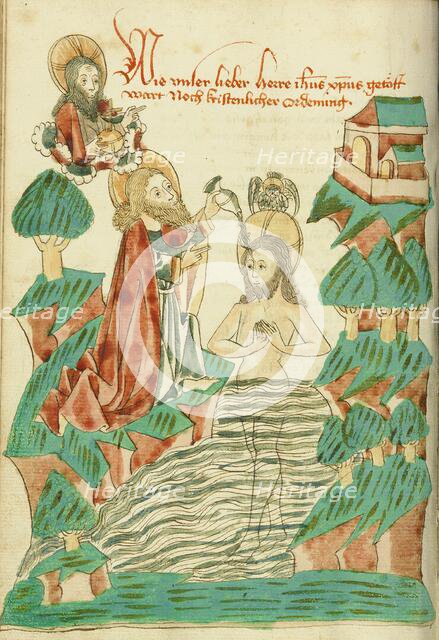 Wie vnser lieber herre ihus xpus getöfft
wart Noch kristenlicher Ordenung.
Heritage
Heritage
Heritage
Heritage
Heritage
Heritage
Heritage
Heritage